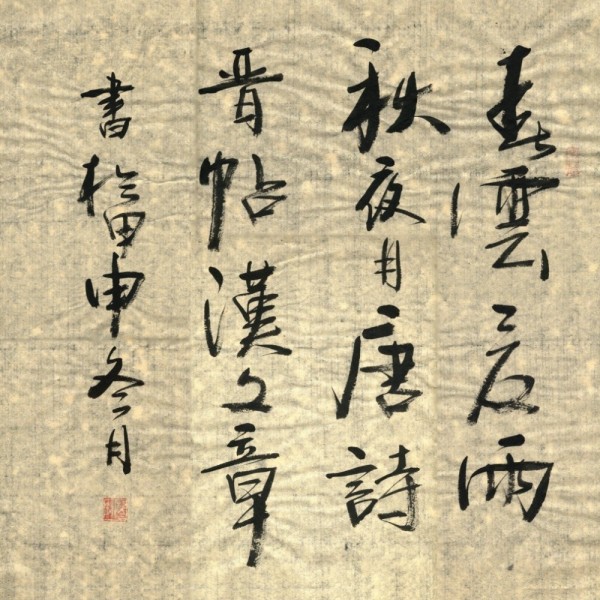 春雲夏雨
秋夜月唐詩
晋帖漢文章
書於甲申冬月